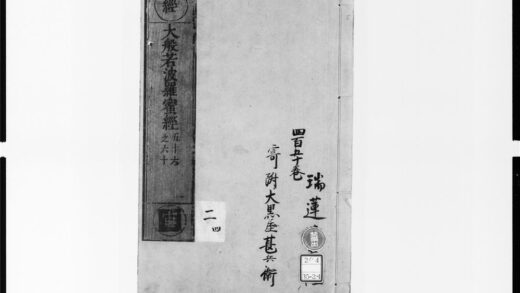 經
大般若波羅蜜經
五十六
之六十
二
四
四百五十卷
瑞蓮
寄附大黒屋甚兵衛